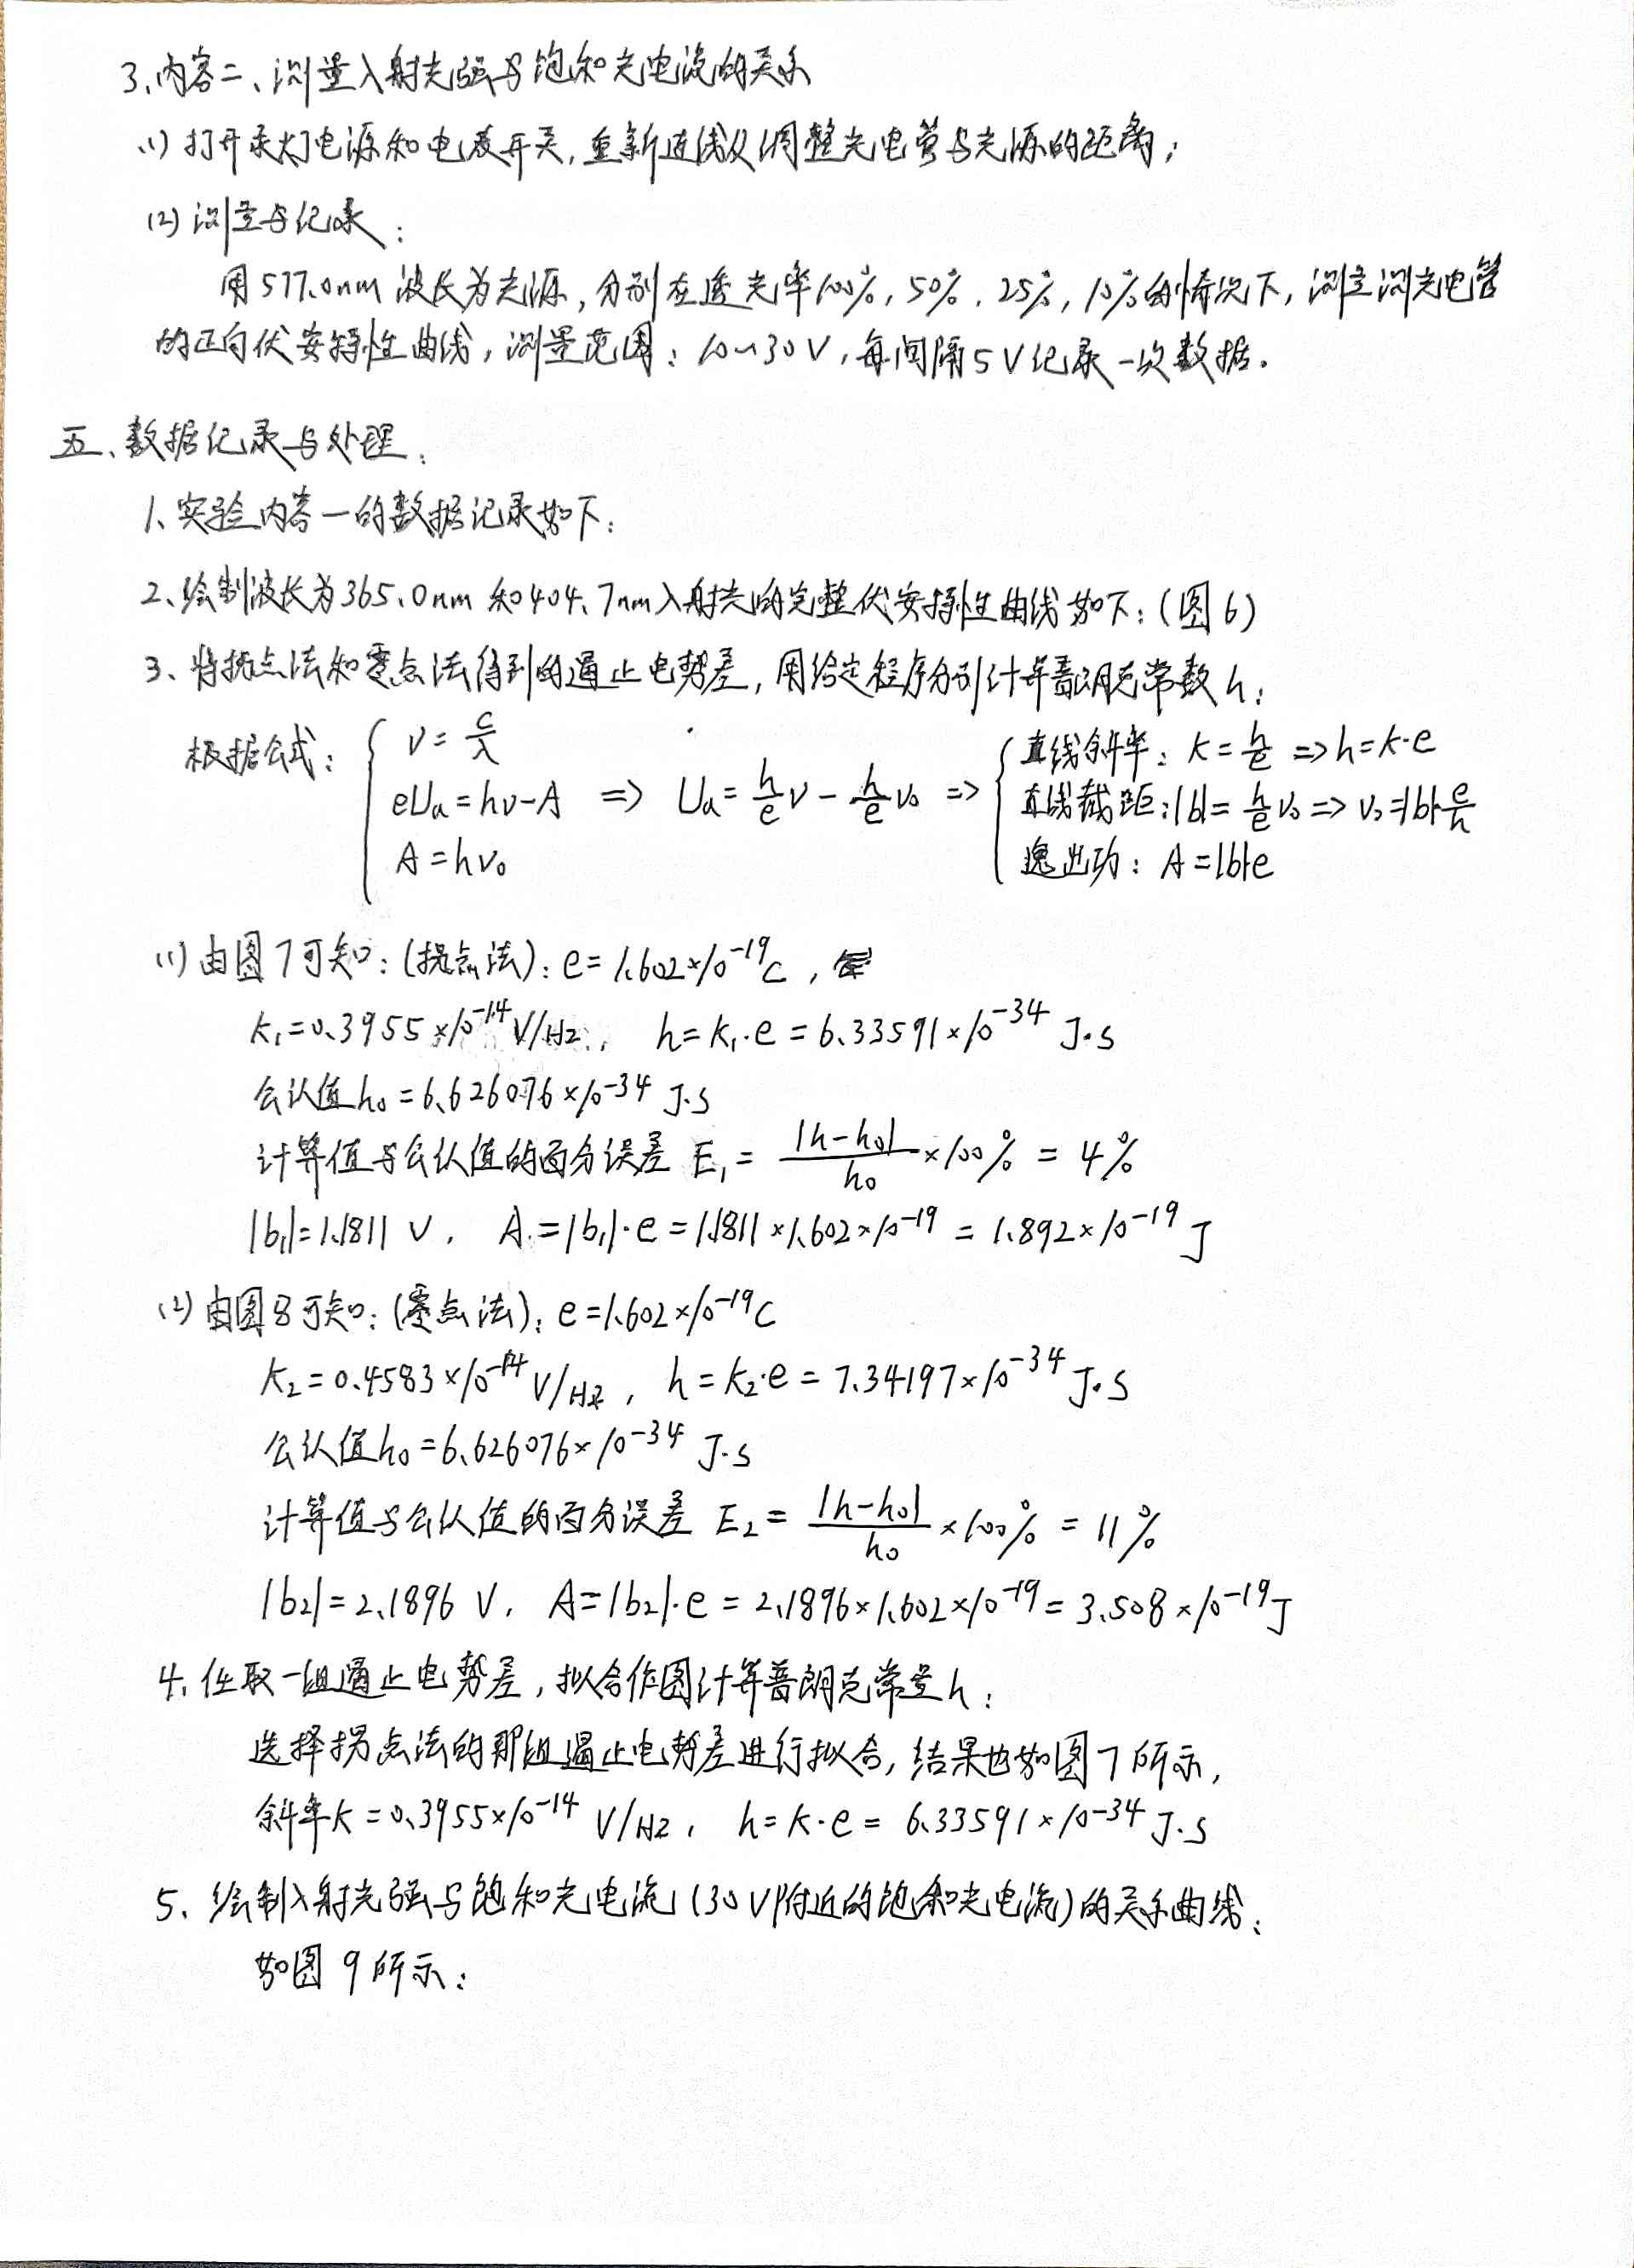 3、内容二、测量入射光强与饱和光电流的关系
(1) 打开汞灯电源和电表开关，重新连线及调整光电管与光源的距离；
(2) 测量与记录：
用577.0nm波长为光源，分别在透光率100%，50%，25%，10%的情况下，测量测光电管
的正向伏安特性曲线，测量范围：10~30V，每间隔5V记录一次数据.
五、数据记录与处理：
1、实验内容一的数据记录如下：
2、绘制波长为365.0nm和404.7nm入射光的完整伏安特性曲线如下：(图6)
3、将拐点法和零点法得到的遏止电势差，用给定程序分别计算普朗克常数h：
根据公式： { ν = c/λ
eUa = hν-A
A = hν₀ => Ua = h/e ν - h/e ν₀ => { 直线斜率：K = h/e => h = K·e
直线截距：|b| = h/e ν₀ => ν₀ = |b|·e/h
逸出功：A = |b|·e
(1) 由图7可知：(拐点法)：e = 1.602×10⁻¹⁹C，
K₁ = 0.3955×10⁻¹⁴V/Hz， h = K₁·e = 6.33591×10⁻³⁴ J·S
公认值h₀ = 6.626076×10⁻³⁴ J·S
计算值与公认值的百分误差 E₁ = |h-h₀|/h₀ ×100% = 4%
|b₁| = 1.1811 V， A = |b₁|·e = 1.1811×1.602×10⁻¹⁹ = 1.892×10⁻¹⁹ J
(2) 由图8可知：(零点法)：e = 1.602×10⁻¹⁹C
K₂ = 0.4583×10⁻¹⁴ V/Hz， h = K₂·e = 7.34197×10⁻³⁴ J·S
公认值h₀ = 6.626076×10⁻³⁴ J·S
计算值与公认值的百分误差 E₂ = |h-h₀|/h₀ ×100% = 11%
|b₂| = 2.1896 V， A = |b₂|·e = 2.1896×1.602×10⁻¹⁹ = 3.508×10⁻¹⁹J
4、任取一组遏止电势差，拟合作图计算普朗克常量h：
选择拐点法的那组遏止电势差进行拟合，结果也如图7所示，
斜率K = 0.3955×10⁻¹⁴ V/Hz， h = K·e = 6.33591×10⁻³⁴ J·S
5、绘制入射光强与饱和光电流(30V附近的饱和光电流)的关系曲线：
如图9所示：